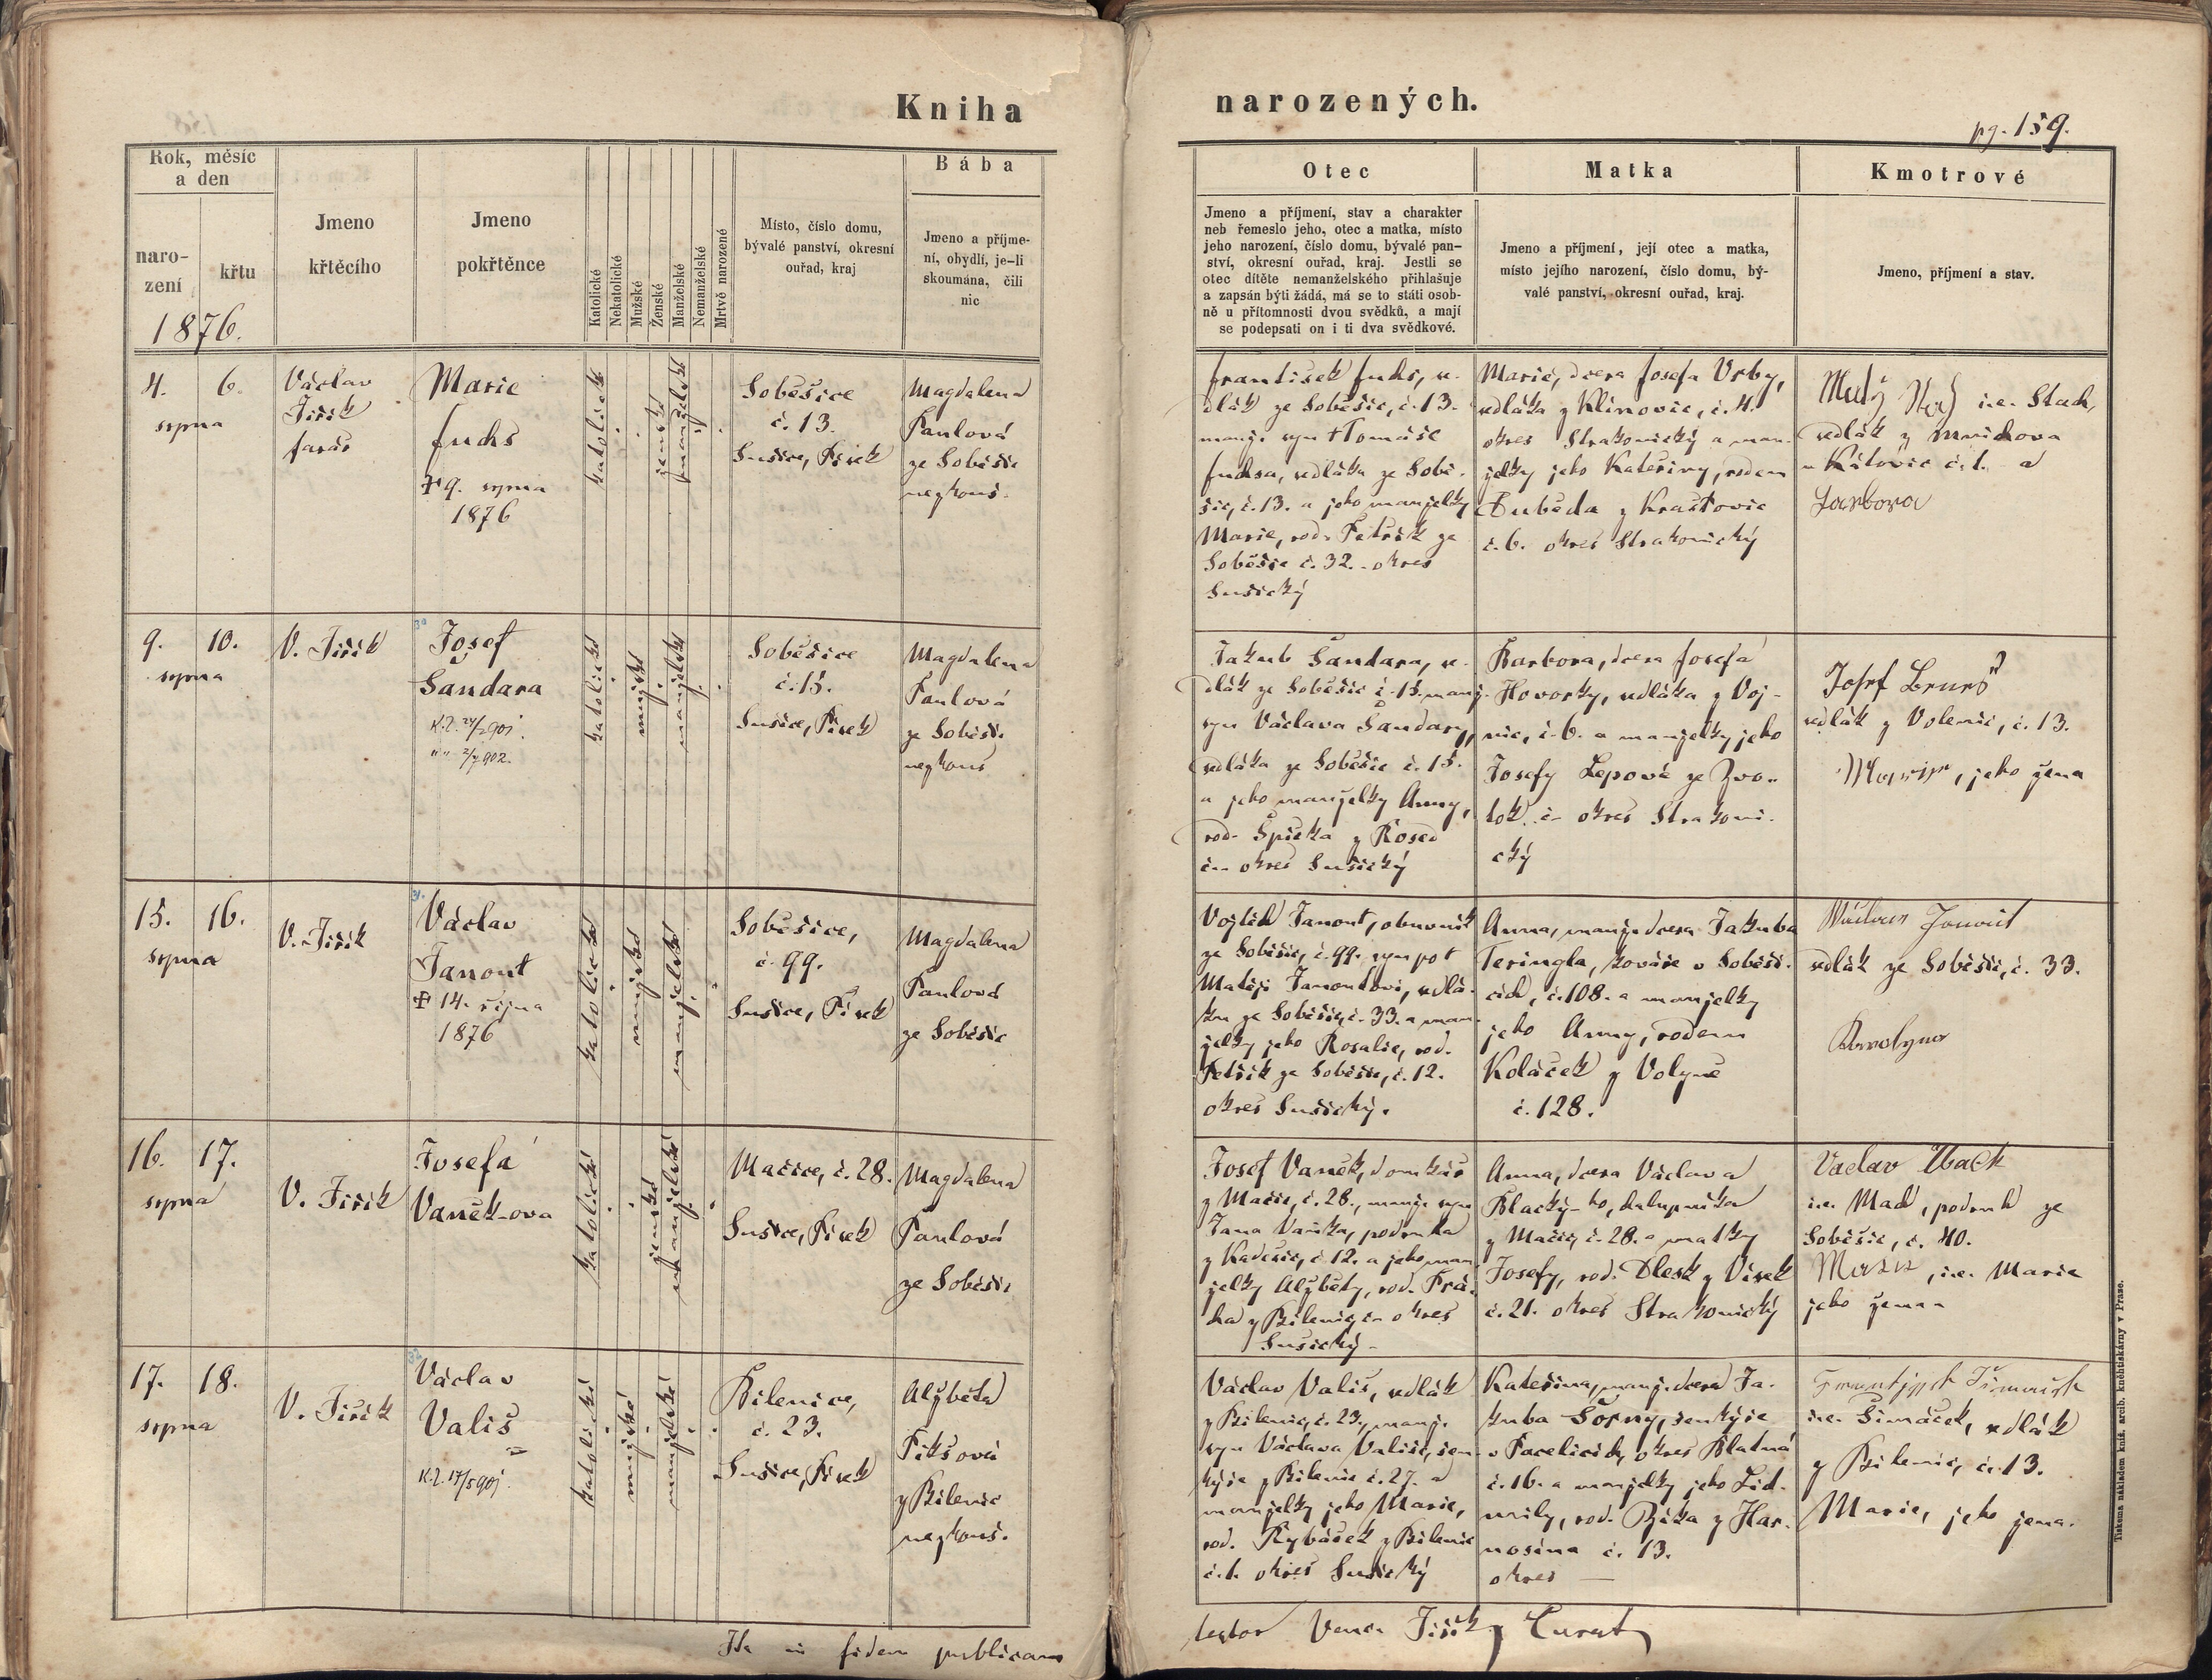 Kniha
narozených.
pg. 159.
Rok, měsíc
a den
naro-
zení
křtu
1876.
Jmeno
křtěcího
Jmeno
pokřtěnce
Katolické
Nekatolické
Mužské
Ženské
Manželské
Nemanželské
Mrtvě narozené
Místo, číslo domu,
bývalé panství, okresní
ouřad, kraj
Bába
Jmeno a příjme-
ní, obydlí, je-li
skoumána, čili
nic
Otec
Jmeno a příjmení, stav a charakter
neb řemeslo jeho, otec a matka, místo
jeho narození, číslo domu, bývalé pan-
ství, okresní ouřad, kraj. Jestli se
otec dítěte nemanželského přihlašuje
a zapsán býti žádá, má se to státi osob-
ně u přítomnosti dvou svědků, a mají
se podepsati on i ti dva svědkové.
Matka
Jmeno a příjmení, její otec a matka,
místo jejího narození, číslo domu, bý-
valé panství, okresní ouřad, kraj.
Kmotrové
Jmeno, příjmení a stav.
4. 6.
srpna
Václav
Jiřík
farář
Marie
Fuchs
✝ 9. srpna
1876
katolické
ženské
manželské
Soběšice
č. 13.
Sušice, Písek
Magdalena
Paulová
ze Soběšic
nezkouš.
František Fuchs, se-
dlák ze Soběšic, č. 13.
manž. syn † Tomáše
Fuchsa, sedláka ze Sobě-
šic, č. 13. a jeho manželky
Marie, rod. Petřík ze
Soběšic č. 32. okres
Sušický
Marie, dcera Josefa Vrby,
sedláka z Klínovic, č. 4.
okres Strakonický a man-
želky jeho Kateřiny, rodem
Dubeda z Kraštovic
č. 6. okres Strakonický
i.e. Stach,
sedlák z Mnichova
u Kátovic č. 1. a
Barbora
9. 10.
srpna
V. Jiřík
Josef
Šandara
katolické
mužské
manželské
Soběšice
č. 15.
Sušice, Písek
Magdalena
Paulová
ze Soběšic
nezkouš
Jakub Šandara, se-
dlák ze Soběšic č. 15. manž.
syn Václava Šandary,
sedláka ze Soběšic č. 15.
a jeho manželky Anny,
rod. Špička z Rosed
č.- okres Sušický
Barbora, dcera Josefa
Hovorky, sedláka z Voj-
nic, č. 6. a manželky jeho
Josefy Lepové ze Zvo-
tok č.- okres Strakoni-
cký
Josef
sedlák z Volenic, č. 13.
, jeho žena
15. 16.
srpna
V. Jiřík
Václav
Janout
✝ 14. října
1876
katolické
mužské
manželské
Soběšice,
č. 99.
Sušice, Písek
Magdalena
Paulová
ze Soběšic
Vojtěch Janout, obuvník
ze Soběšic, č. 99. syn po †
Matěji Janoutovi, sedlá-
ku ze Soběšic, č. 33. a man-
želky jeho Rosalie, rod.
Petřík ze Soběšic, č. 12.
okres Sušický.
Anna, manž. dcera Jakuba
Teringla, kováře v Soběši-
cích, č. 108. a manželky
jeho Anny, rodem
Koláček z Volyně
č. 128.
Václav Janout
sedlák ze Soběšic, č. 33.
Karolyna
16. 17.
srpna
V. Jiřík
Josefa
Vaněk-ova
katolické
ženské
manželské
Mačice, č. 28.
Sušice, Písek
Magdalena
Paulová
ze Soběšic
Josef Vaněk, domkář
z Mačic, č. 28., manž. syn
Jana Vaňka, podruha
z Kadešic, č. 12. a jeho man-
želky Alžběty, rod. Prá-
cha z Bílenic, č.- okres
Sušický -
Anna, dcera Václava
Blacký-ho, chalupníka
z Mačic, č. 28. a matky
Josefy, rod. Dlesk z Vísek
č. 21. okres Strakonický
Vaclav
i.e. Mach, podruh ze
Soběšic, č. 40.
, i.e. Marie
jeho žena
17. 18.
srpna
V. Jiřík
Václav
Vališ
katolické
mužské
manželské
Bílenice,
č. 23.
Sušice, Písek
Alžběta
Pikšová
z Bílenic
nezkouš.
Václav Vališ, sedlák
z Bílenic, č. 23., manž.
syn Václava Vališe, šen-
kýře z Bílenic č. 27. a
manželky jeho Marie,
rod. Rybáček z Bílenic
č. 1. okres Sušický
Kateřina, manž. dcera Ja-
kuba Šorny, šenkýře
v Pacelicích, okres Blatná
č. 16. a manželky jeho Lid-
mily, rod. Říka z Har-
nosína č. 13.
okres —
i.e. Šimáček, sedlák
z Bílenic, č. 13.
Marie, jeho žena.
Ita in fidem publicam
testor Venc. Jiřík Curat
Tiskema nákladem kníž. arcib. knihtiskárny v Praze.